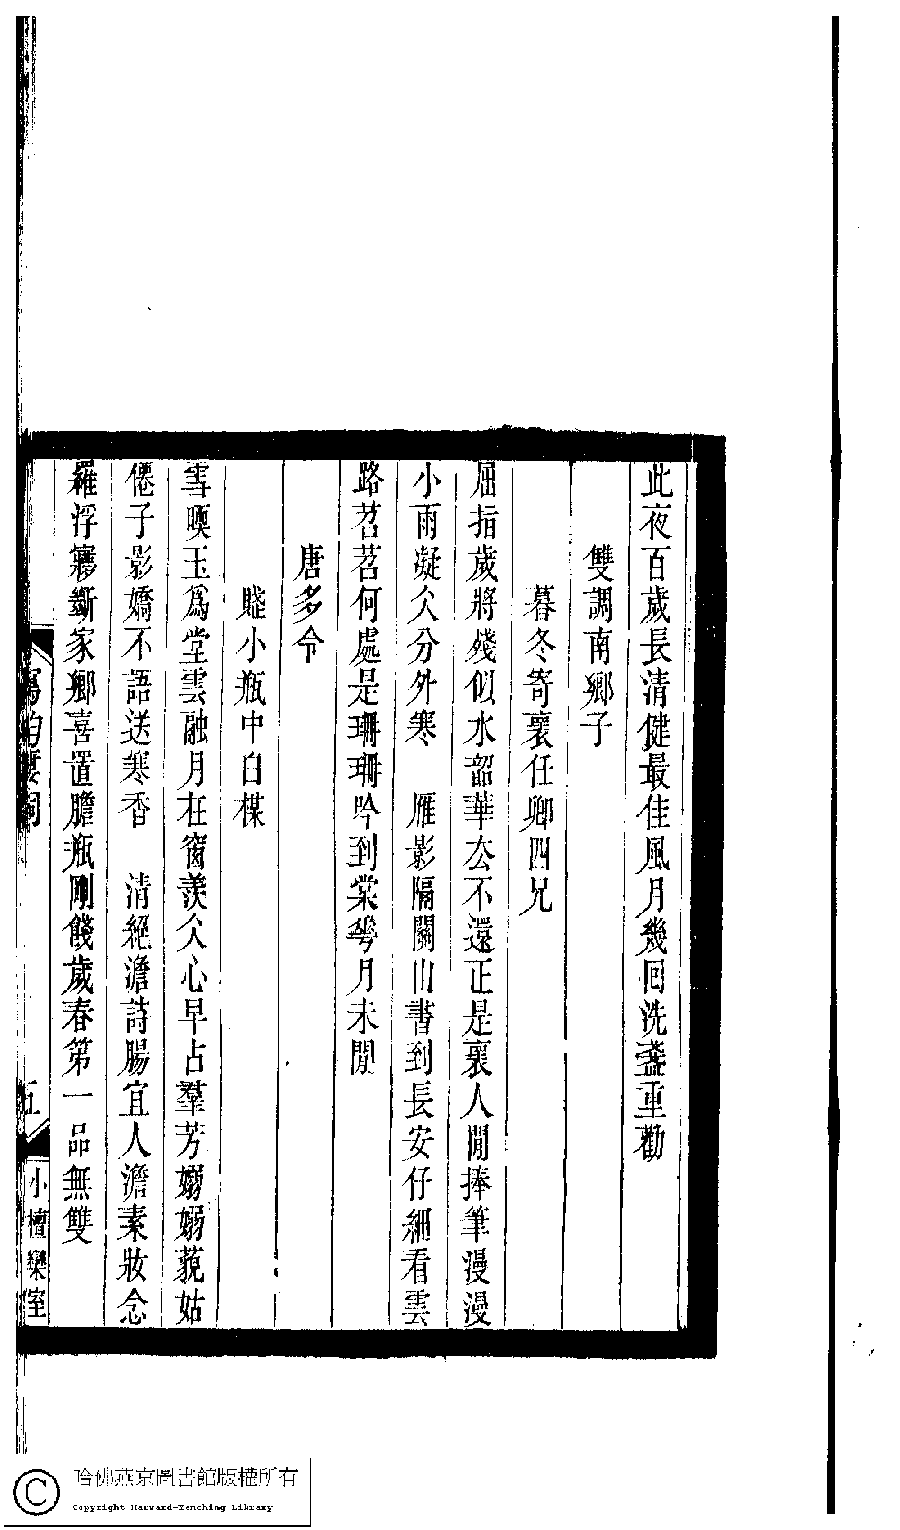 此夜百歲長清健最佳風月幾回洗盞重勸
雙調南鄉子
暮冬寄襄任卿四兄
屈指歲將殘似水韶華厺不還正是襄人閒捧筆漫漫
小雨凝仌分外寒　雁影隔關山書到長安仔細看雲
路苕苕何處是珊珊吟到棠𠌶月未閒
唐多令
賤小瓶中白楳
雪㬉玉爲堂雲融月在窗羨仌心早占羣芳嫋嫋藐姑
僊子影嬌不語送寒香　清絕澹詩腸宜人澹素妝念
羅浮㝱斷家鄉喜置膽瓶剛餞歲春第一品無雙
五
小檀欒室
哈佛燕京圖書館版權所有
Copyright Harvard-Yenching Library